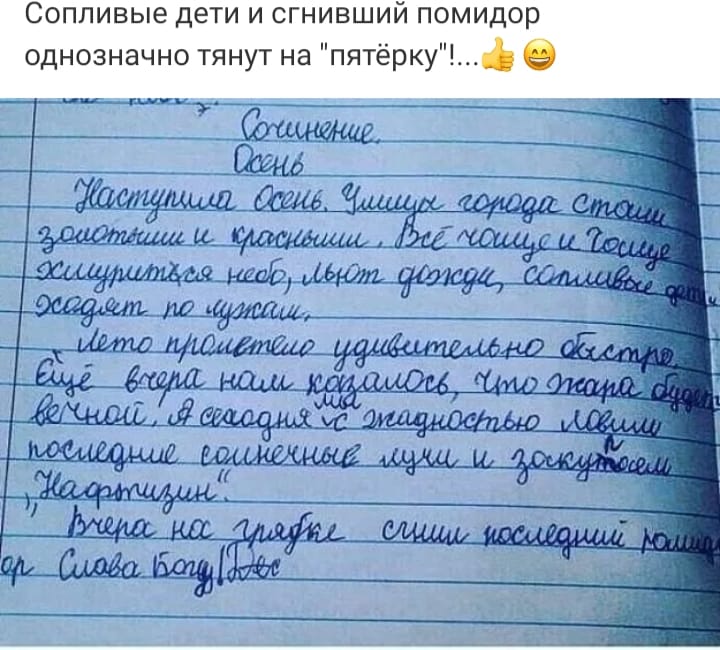 Сопливые дети и сгнивший помидор
однозначно тянут на "пятёрку"!...👍😄
Сочинение.
Осень
Наступила Осень. Улицы города стали
золотыми и красными. Всё чаще и чаще
хмурится небо, льют дожди, сопливые дети
ходят по лужам.
Лето пролетело удивительно быстро.
Ещё вчера нам казалось, что жара будет
вечной. А сегодня мы с жадностью ловим
последние солнечные лучи и закупаем
„Нафтизин".
Вчера на грядке сгнил последний помид
ор Слава Богу!